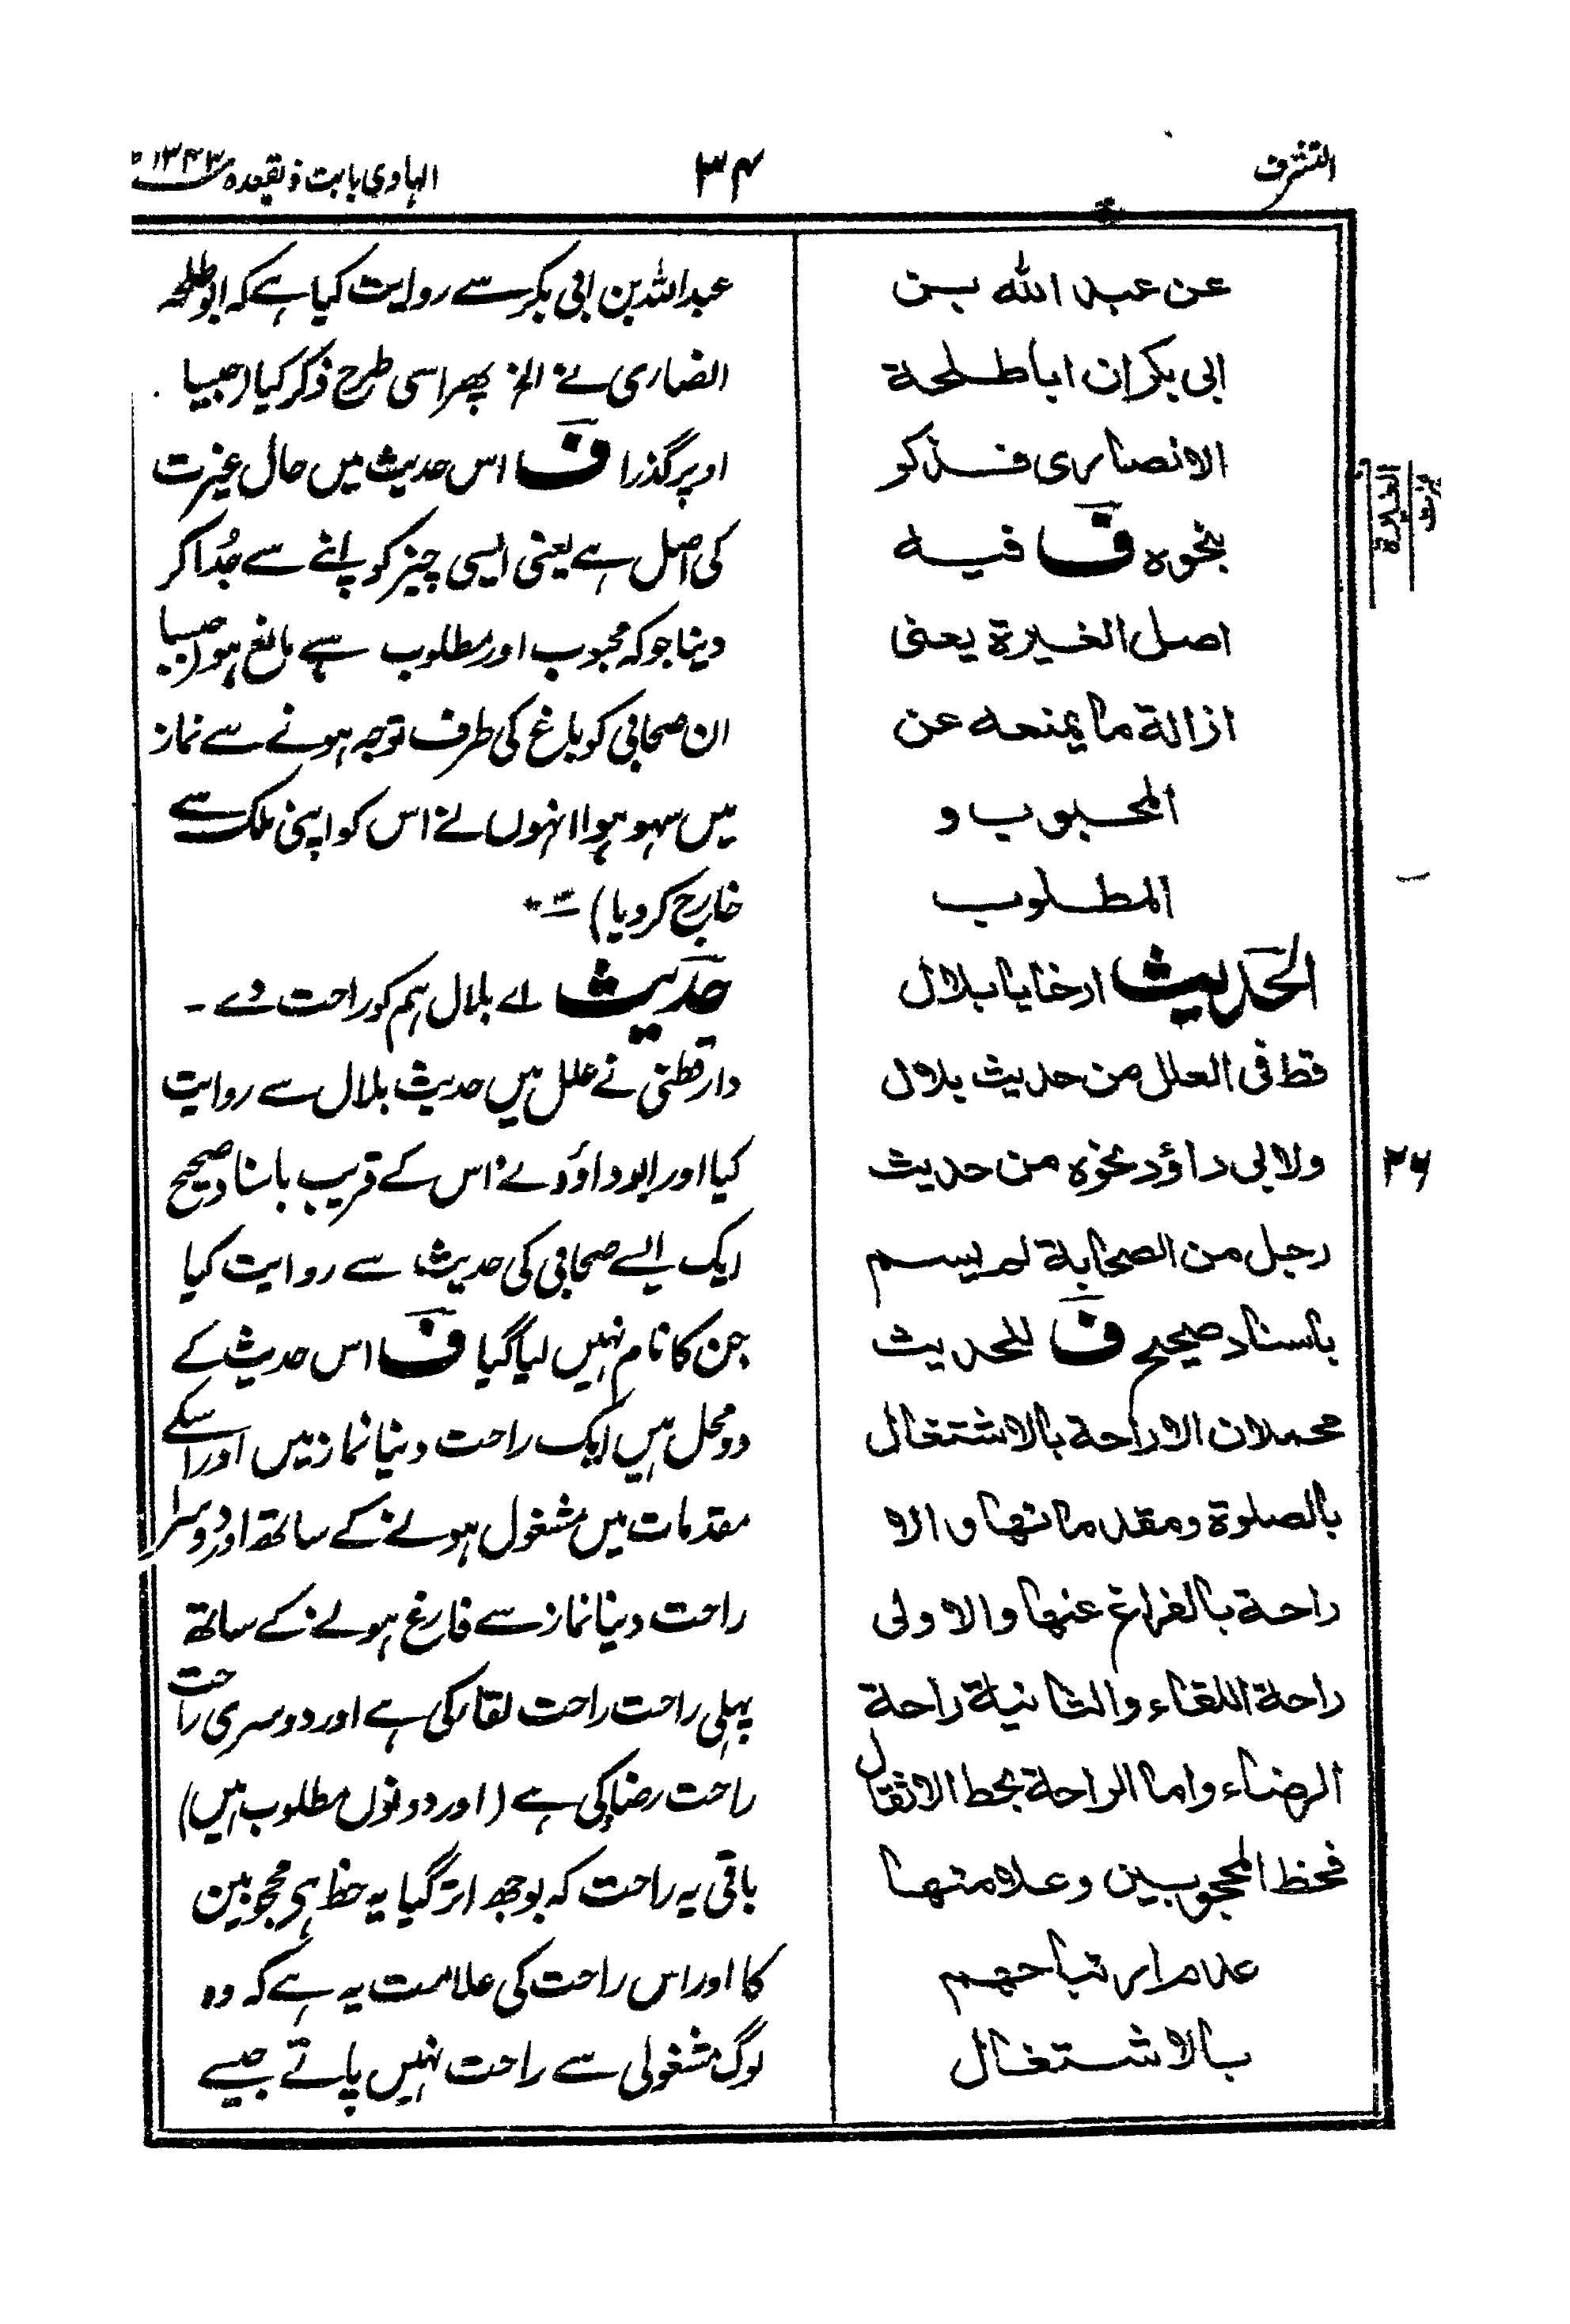 التشرف
۳۴
الہادی بابت ذیقعدہ ۱۳۴۳ھ
عن عبد الله بن
ابی بکر ان ابا طلحة
الانصاری فذکر
نحوه ف فیه
اصل الغیرة یعنی
ازالة ما یمنعه عن
المحبوب و
المطلوب
الحدیث ارحنا یا بلال
قط فی العلل من حدیث بلال
ولابی داؤد نحوه من حدیث
رجل من الصحابة لم یسم
باسناد صحیح ف للحدیث
محملان الاراحة بالاشتغال
بالصلوة ومقدماتها والا
راحة بالفراغ عنها والاولی
راحة اللقاء والثانیة راحة
الرضاء واما الراحة بحط الاثقال
فحظ المحجوبین وعلامتها
عدم ارتیاحهم
بالاشتغال
عبداللہ بن ابی بکر سے روایت کیا ہے کہ ابو طلحہ
انصاری نے الخ پھر اسی طرح ذکر کیا (جیسا
اوپر گذرا ف اس حدیث میں حال غیرت
کی اصل ہے یعنی ایسی چیز کو اپنے سے جُدا کر
دینا جو کہ محبوب اور مطلوب سے مانع ہو (جیسا
ان صحابی کو باغ کی طرف توجہ ہونے سے نماز
میں سہو ہوا انہوں نے اس کو اپنی ملک سے
خارج کر دیا) ۔
حدیث اے بلال ہم کو راحت دے ۔
دارقطنی نے علل میں حدیث بلال سے روایت
کیا اور ابو داؤد نے اس کے قریب باسناد صحیح
ایک ایسے صحابی کی حدیث سے روایت کیا
جن کا نام نہیں لیا گیا ف اس حدیث کے
دو محمل ہیں ایک راحت دینا نماز میں اور اسکے
مقدمات میں مشغول ہونے کے ساتھ اور دوسرا
راحت دینا نماز سے فارغ ہونے کے ساتھ
پہلی راحت راحت لقاء کی ہے اور دوسری راحت
راحت رضا کی ہے (اور دونوں مطلوب ہیں)
باقی یہ راحت کہ بوجھ اتر گیا یہ حظ ہی محجوبین
کا اور اس راحت کی علامت یہ ہے کہ وہ
لوگ مشغولی سے راحت نہیں پاتے جیسے
الغیرة
غیرت
۲۶